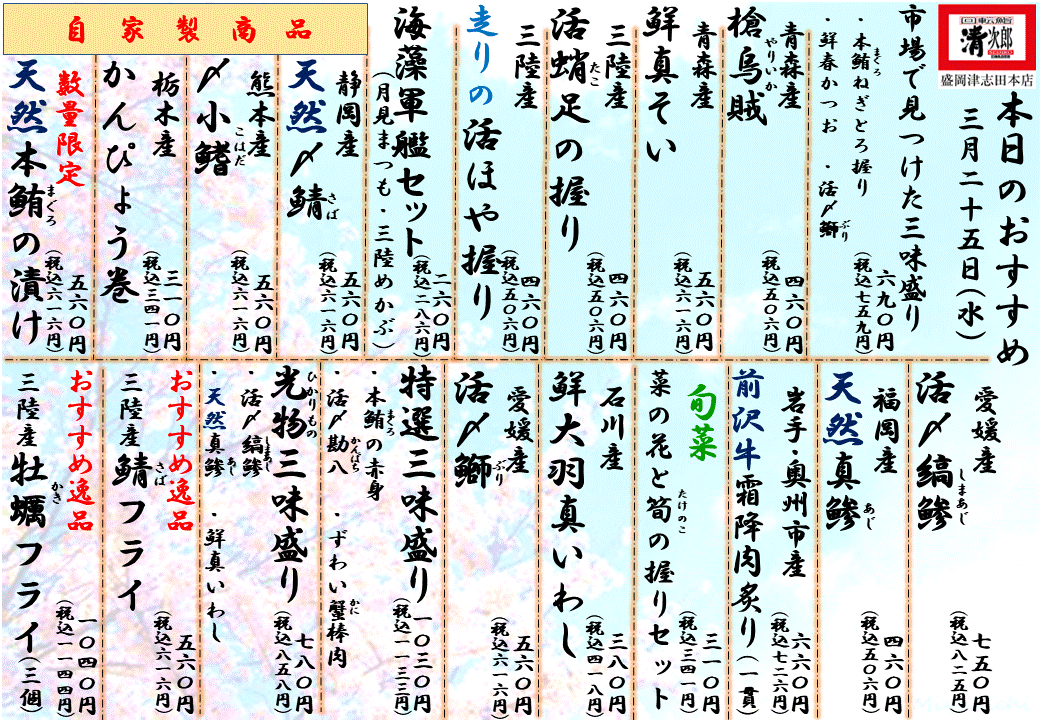 回転鮨
清次郎
盛岡津志田本店
本日のおすすめ
三月二十五日(水)
市場で見つけた三味盛り
・本鮪ねぎとろ握り
まぐろ
・鮮春かつお ・活〆鰤
ぶり
六九〇円
(税込七五九円)
青森産
槍烏賊
やりいか
四六〇円
(税込五〇六円)
青森産
鮮真そい
五六〇円
(税込六一六円)
三陸産
活蛸足の握り
たこ
四六〇円
(税込五〇六円)
三陸産
走りの活ほや握り
四六〇円
(税込五〇六円)
海藻軍艦セット
(月見まつも・三陸めかぶ)
二六〇円
(税込二八六円)
自家製商品
静岡産
天然〆鯖
さば
五六〇円
(税込六一六円)
熊本産
〆小鰭
こはだ
五六〇円
(税込六一六円)
栃木産
かんぴょう巻
三一〇円
(税込三四一円)
数量限定
天然本鮪の漬け
まぐろ
五六〇円
(税込六一六円)
愛媛産
活〆縞鯵
しまあじ
七五〇円
(税込八二五円)
福岡産
天然真鯵
あじ
四六〇円
(税込五〇六円)
岩手・奥州市産
前沢牛霜降肉炙り(一貫)
六六〇円
(税込七二六円)
旬菜
菜の花と筍の握りセット
たけのこ
三一〇円
(税込三四一円)
石川産
鮮大羽真いわし
三八〇円
(税込四一八円)
愛媛産
活〆鰤
ぶり
五六〇円
(税込六一六円)
特選三味盛り
・本鮪の赤身
まぐろ
・活〆勘八 ・ずわい蟹棒肉
かんぱち
かに
一〇三〇円
(税込一一三三円)
光物三味盛り
ひかりもの
・活〆縞鯵
しまあじ
・天然真鯵 ・鮮真いわし
あじ
七八〇円
(税込八五八円)
おすすめ逸品
三陸産鯖フライ
さば
五六〇円
(税込六一六円)
おすすめ逸品
三陸産牡蠣フライ(三個)
かき
一〇四〇円
(税込一一四四円)